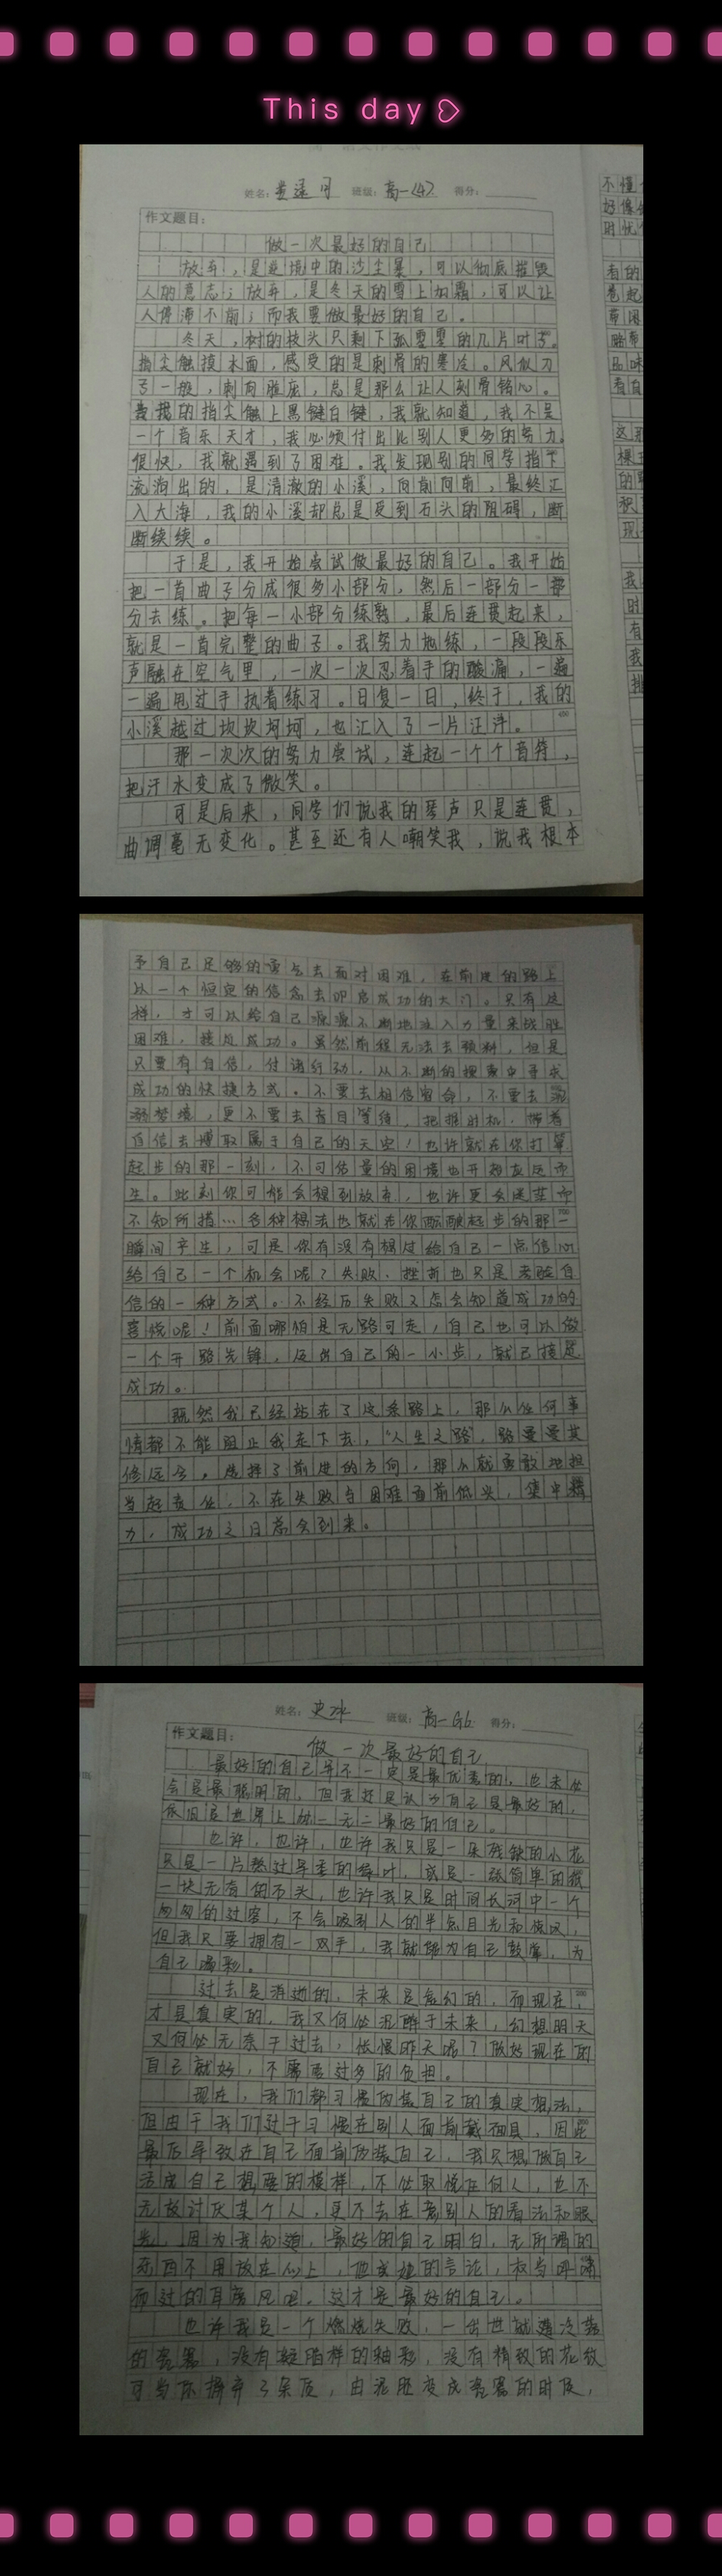 This day
姓名: 班级: 高一(4) 得分:
作文题目:
做一次最好的自己
放弃,是逆境中的沙尘暴,可以彻底摧毁
人的意志;放弃,是冬天的雪上加霜,可以让
人停滞不前;而我要做最好的自己。
冬天,树的枝头只剩下孤零零的几片叶子。
指尖触摸水面,感受的是刺骨的寒冷。风似刀
子一般,刺向脸庞,总是那么让人刻骨铭心。
我的指尖触上黑键白键,我就知道,我不是
一个音乐天才,我必须付出比别人更多的努力。
很快,我就遇到了困难。我发现别的同学指下
流淌出的,是清澈的小溪,向前向前,最终汇
入大海,我的小溪却总是受到石头的阻碍,断
断续续。
于是,我开始尝试做最好的自己。我开始
把一首曲子分成很多小部分,然后一部分一部
分去练。把每一小部分练熟,最后连贯起来,
就是一首完整的曲子。我努力地练,一段段乐
声融在空气里,一次一次忍着手的酸痛,一遍
一遍甩过手执着练习。日复一日,终于,我的
小溪越过坎坎坷坷,也汇入了一片汪洋。
那一次次的努力尝试,连起一个个音符,
把汗水变成了微笑。
可是后来,同学们说我的琴声只是连贯,
曲调毫无变化。甚至还有人嘲笑我,说我根本
予自己足够的勇气去面对困难,在前进的路上
以一个恒定的信念去叩启成功的大门。只有这
样,才可以给自己源源不断地注入力量来战胜
困难,接近成功。虽然前程无法去预料,但是
只要有自信,付诸行动,从不断的摸索中寻求
成功的快捷方式。不要去相信宿命,不要去
溺梦境,更不要去盲目等待,把握时机,带着
自信去博取属于自己的天空!也许就在你打算
起步的那一刻,不可估量的困境也开始应运而
生。此刻你可能会想到放弃,也许更会迷茫而
不知所措…各种想法也就在你酝酿起步的那一
瞬间产生,可是你有没有想过给自己一点信心
给自己一个机会呢?失败、挫折也只是考验自
信的一种方式。不经历失败又怎会知道成功的
喜悦呢!前面哪怕是无路可走,自己也可以做
一个开路先锋,迈出自己的一小步,就已接近
成功。
既然我已经站在了这条路上,那么任何事
情都不能阻止我走下去,"人生之路,路曼曼其
修远兮,选择了前进的方向,那么就勇敢地担
当起责任,不在失败与困难面前低头,集中精
力,成功之日总会到来。
姓名: 史冰 班级: 高一 得分:
作文题目:
做一次最好的自己
最好的自己并不一定是最优秀的,也未必
会是最聪明的,但我还是认为自己是最好的,
依旧是世界上独一无二最好的自己。
也许,也许,也许我只是一朵残缺的小花
只是一片熬过旱季的绿叶,或是一张简单的纸
一块无奇的石头,也许我只是时间长河中一个
匆匆的过客,不会吸引人的半点目光和惊叹,
但我只要拥有一双手,我就能为自己鼓掌,为
自己喝彩。
过去是消逝的,未来是虚幻的,而现在,
才是真实的,我又何必沉醉于未来,幻想明天
又何必无奈于过去,怅恨昨天呢?做好现在的
自己就好,不需要过多的负担。
现在,我们都习惯伪装自己的真实想法,
但由于我们过于习惯在别人面前戴面具,因此
最后导致在自己面前伪装自己,我只想做自己
活成自己想要的模样,不必取悦任何人,也不
无故讨厌某个人,更不去在意别人的看法和眼
光,因为我知道,最好的自己明白,无所谓的
东西不用放在心上,他或她的言论,权当呼啸
而过的耳旁风吧。这才是最好的自己。
也许我是一个燃烧失败,一出世就遭冷落
的瓷器,没有凝脂样的釉彩,没有精致的花纹
可当你摒弃了杂质,由泥胚变成瓷器的时候,